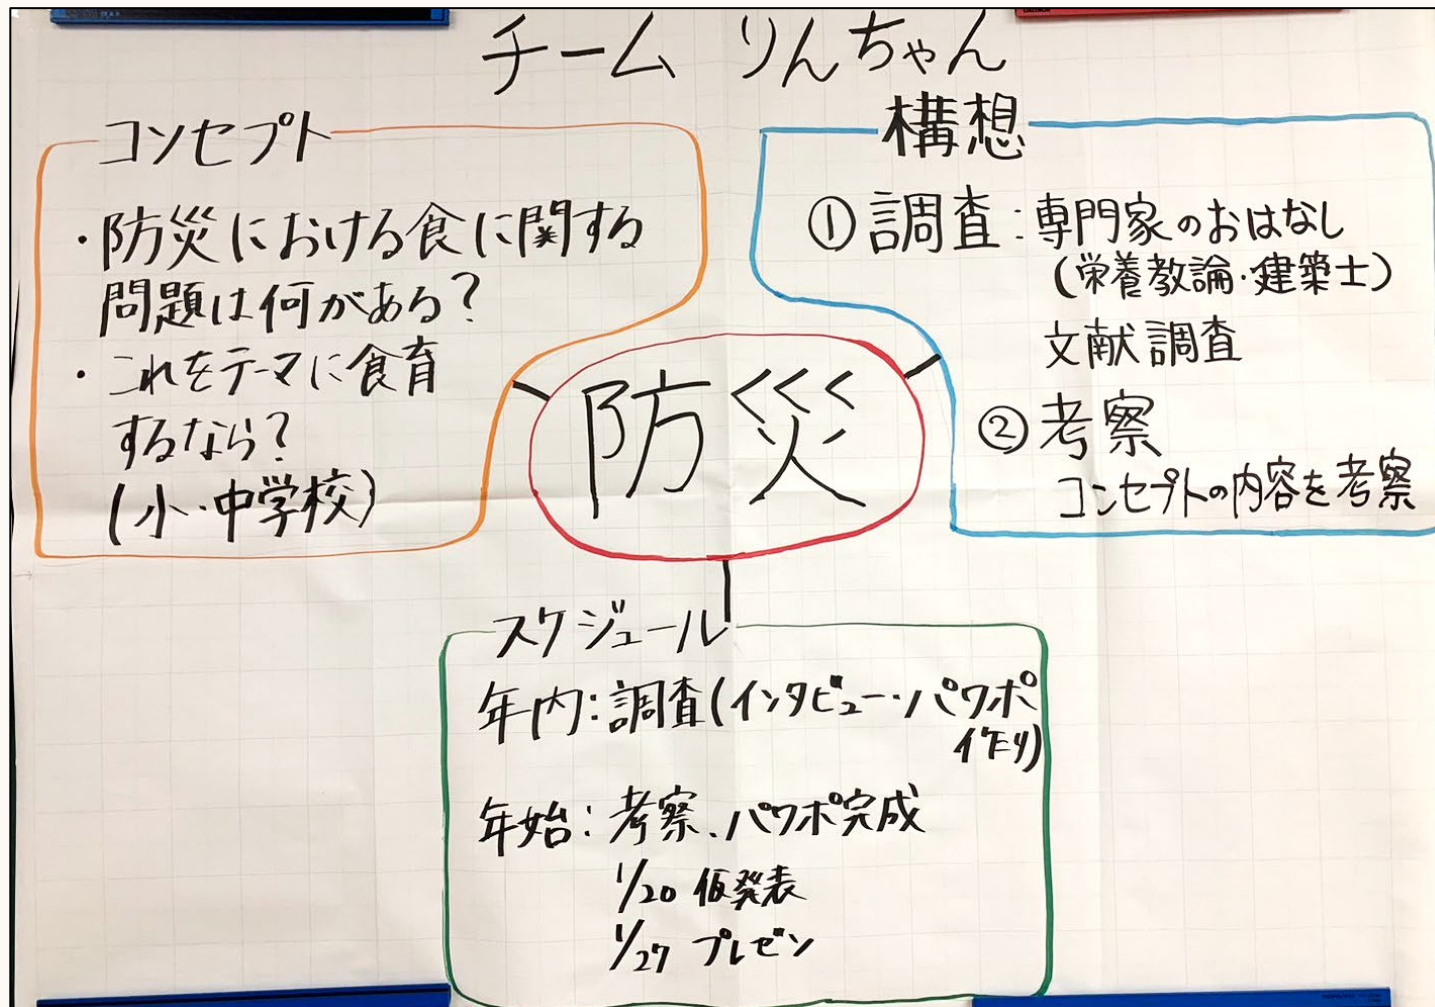 チーム りんちゃん
コンセプト
・防災における食に関する
問題は何がある?
・これをテーマに食育
するなら?
(小・中学校)
構想
①調査:専門家のおはなし
(栄養教諭・建築士)
文献調査
②考察
コンセプトの内容を考察
防災
スケジュール
年内:調査(インタビュー・パワポ
作り)
年始:考察、パワポ完成
1/20 仮発表
1/27 プレゼン